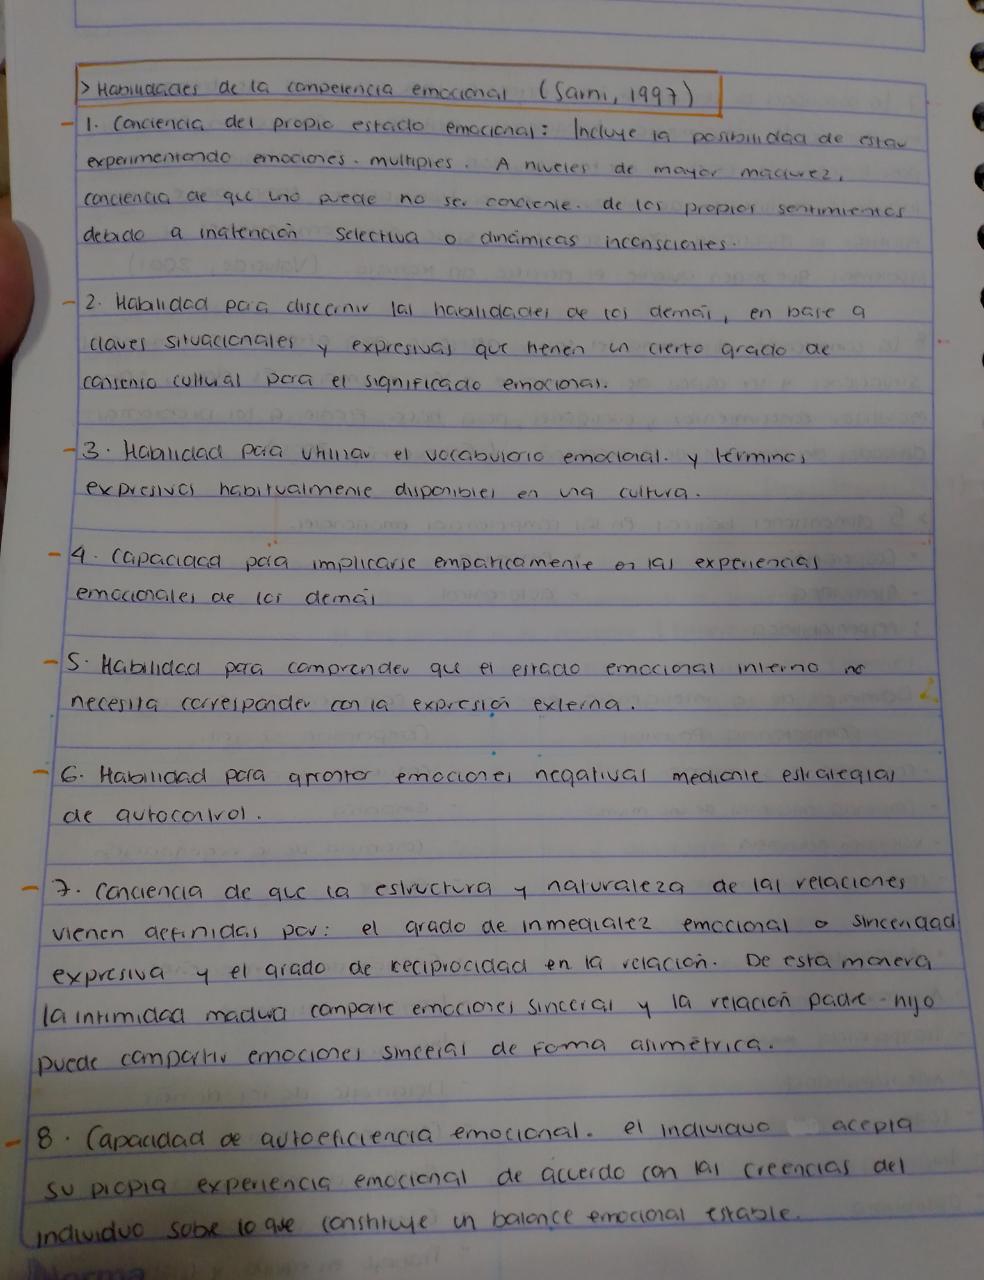 > Habilidades de la competencia emocional (Sarni, 1997)
- 1. Conciencia del propio estado emocional: Incluye la posibilidad de estar
experimentando emociones. multiples. A niveles de mayor madurez,
conciencia de que uno puede no ser conciente. de los propios sentimientos
debido a inatención selectiva o dinámicas inconscientes.
- 2. Habilidad para discernir las habilidades de los demás, en base a
claves situacionales y expresivas que tienen un cierto grado de
consenso cultural para el significado emocional.
- 3. Habilidad para utilizar el vocabulario emocional. y términos
expresivos habitualmente disponibles en una cultura.
- 4. Capacidad para implicarse empaticamente en las experiencias
emocionales de los demás
- 5. Habilidad para comprender que el estado emocional interno no
necesita corresponder con la expresión externa.
- 6. Habilidad para afrontar emociones negativas mediante estrategias
de autocontrol.
- 7. Conciencia de que la estructura y naturaleza de las relaciones
vienen definidas por: el grado de inmedialez emocional o sinceridad
expresiva y el grado de reciprocidad en la relación. De esta manera
la intimidad madura comparte emociones sinceras y la relación padre - hijo
puede compartir emociones sinceras de forma asimétrica.
- 8. Capacidad de autoeficiencia emocional. el individuo acepta
su propia experiencia emocional de acuerdo con las creencias del
individuo sobre lo que constituye un balance emocional estable.
Norma